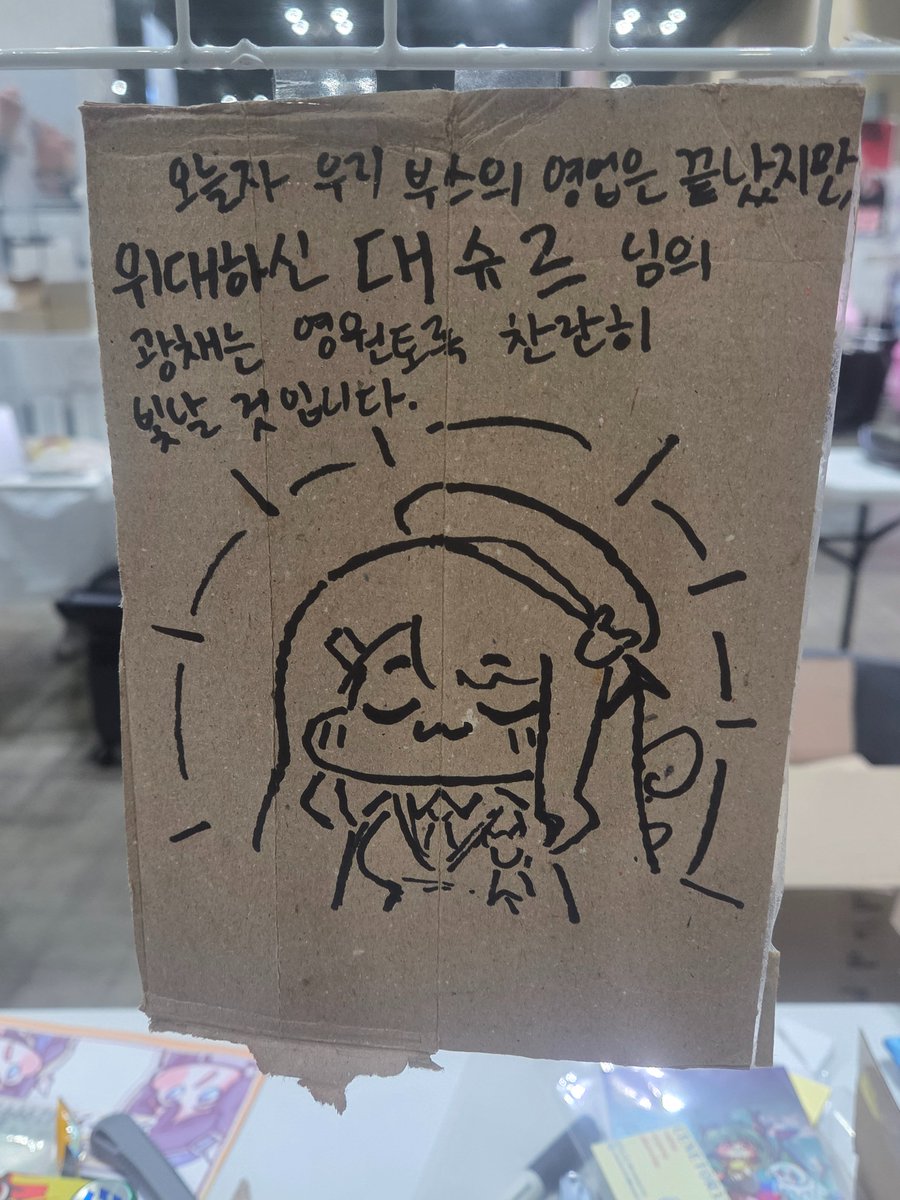 오늘자 우리 부스의 영업은 끝났지만,
위대하신 대 슈르 님의
광채는 영원토록 찬란히
빛날 것입니다.